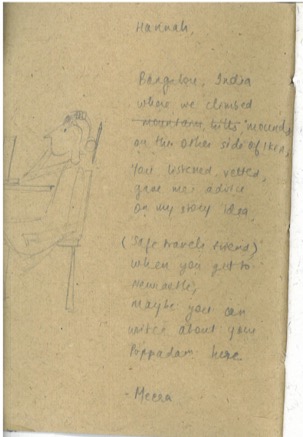 Hannah,
Bangalore, India
where we climbed
mountains, hills mounds
on the other side of Ikea,
You listened, vetted,
gave me advice
on my story idea,
(Safe travels friend)
when you get to
Newcastle,
Maybe you can
write about your
Poppadam here
- Meera